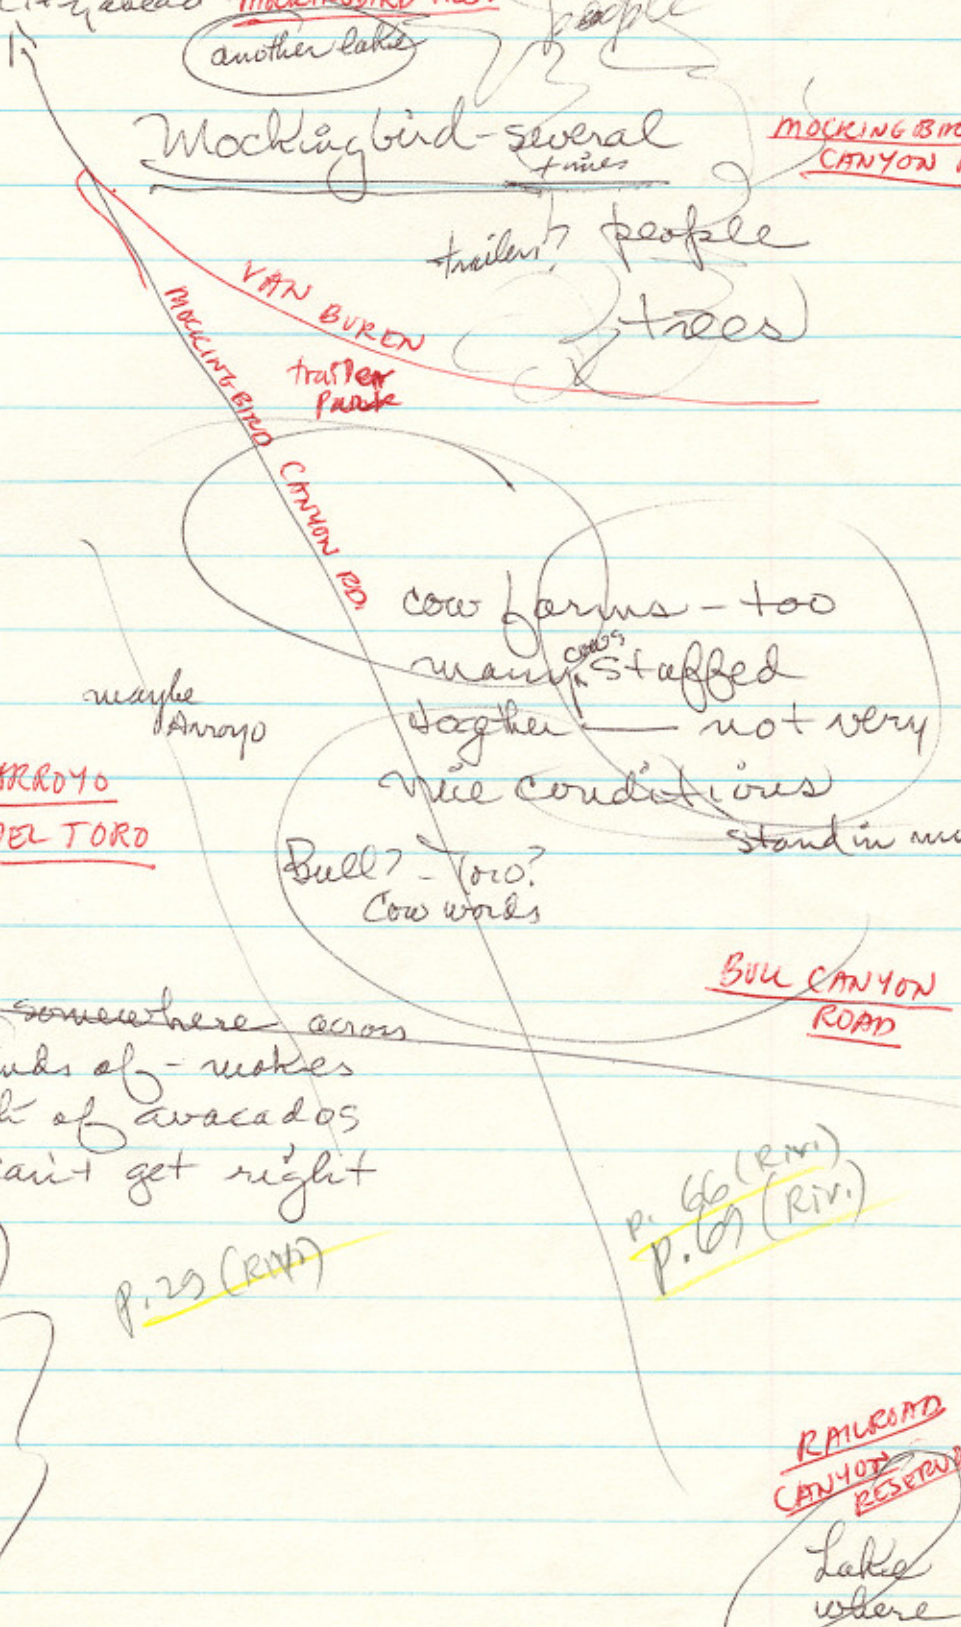 another lake
people
Mockingbird-several
times
MOCKINGBIR
CANYON
trailers?
people
trees
VAN BUREN
MOCKINGBIRD CANYON RD.
trailer
Park
cow farms - too
many cows stuffed
togther — not very
nice conditions
stand in mu
maybe
Arroyo
ARROYO
DEL TORO
Bull? - Toro?
Cow words
BULL CANYON
ROAD
somewhere across
nds of - makes
of avacados
can't get right
p. 66 (Riv.)
p. 69 (Riv.)
p. 29 (Riv.)
RAILROAD
CANYON
RESERV
Lake
where